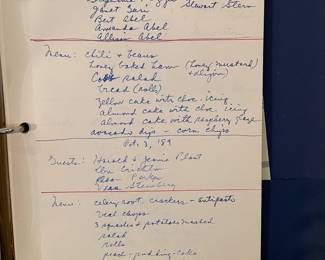 Stewart Stern
Janet Sari
Bert Abel
Amanda Abel
Allison Abel
Menu: chili & beans
honey baked ham (honey mustard)
Cobb salad
bread (rolls)
yellow cake with choc. icing
almond cake with choc icing
almond cake with raspberry
avocado dip - corn chips
Oct. 3, '89
Guests: Harold & Jeanie Plant
Parker
Steinberg
Menu: celery root, crackers - antipasto
veal chops
3 squashes & potatoes mashed
salad
rolls
peach - pudding - cake